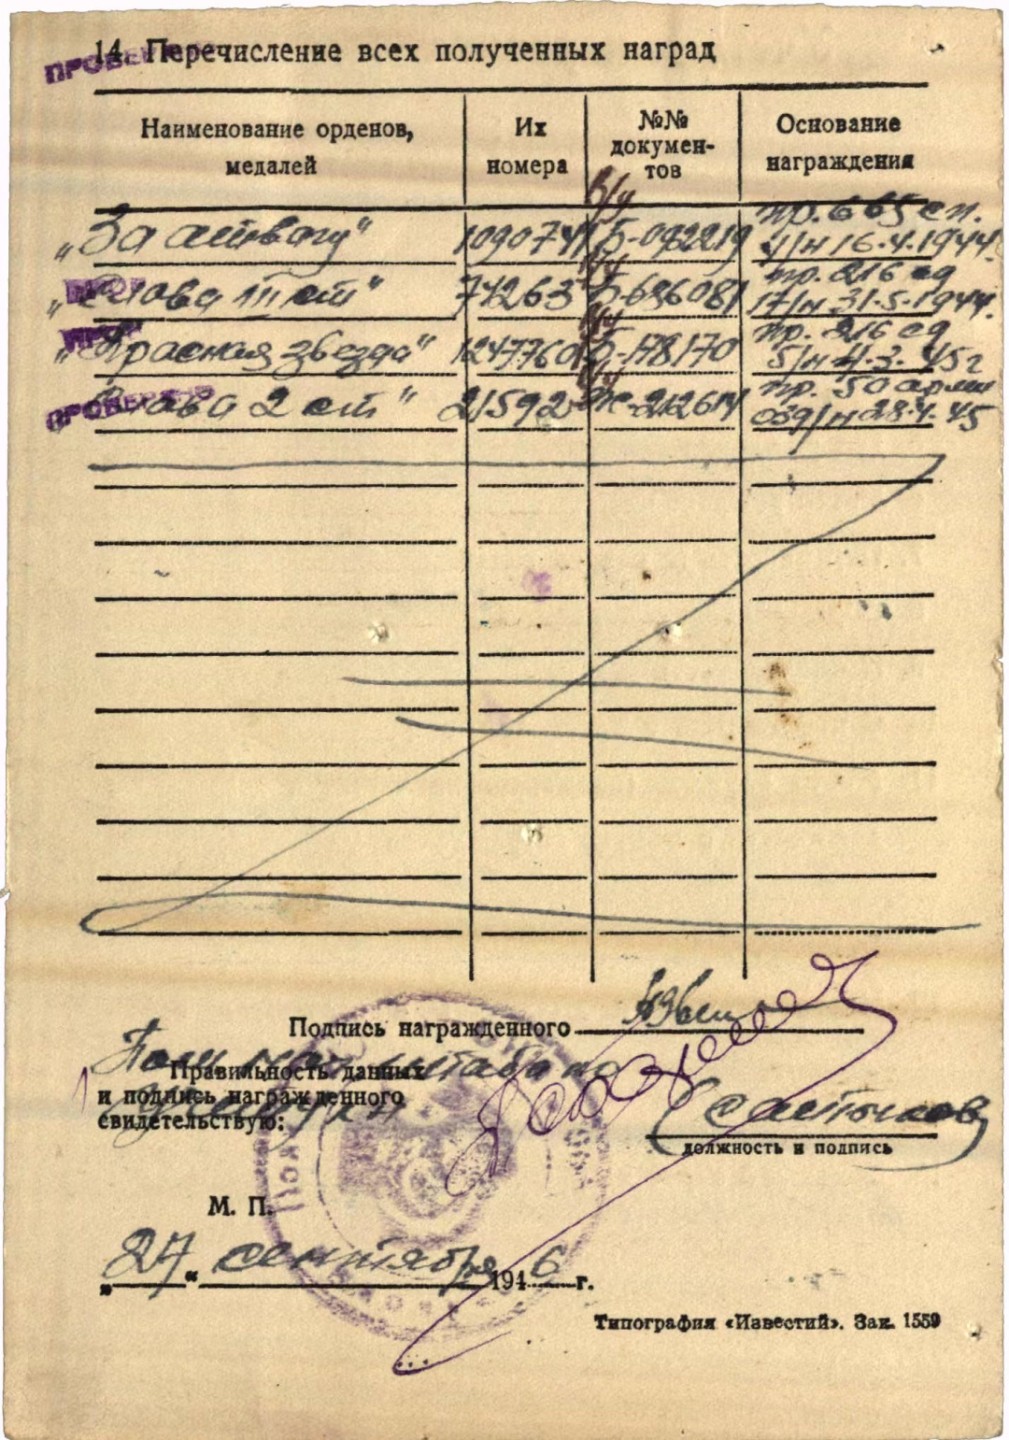 14. Перечисление всех полученных наград
Наименование орденов, медалей
Их номера
№№ докумен-тов
Основание награждения
„За отвагу“ 1090741 в/у Б-092219 пр. 665 сп. 4/н 16.4.1944.
„Слава III ст“ 74263 Б-686081 пр. 216 сд 17/н 31.5.1944.
„Красная звезда“ 1247760 в/у -178170 пр. 216 сд 5/н 4.3.45г
„Слава 2 ст“ 21592 в/у -212614 пр. 50 армии 039/н 28.4.45
ПРОВЕРЕНО
Подпись награжденного
Правильность данных
и подпись награжденного
свидетельствую:
должность и подпись
М. П.
„27“ сентября 1946 г.
Типография «Известий». Зак. 1559